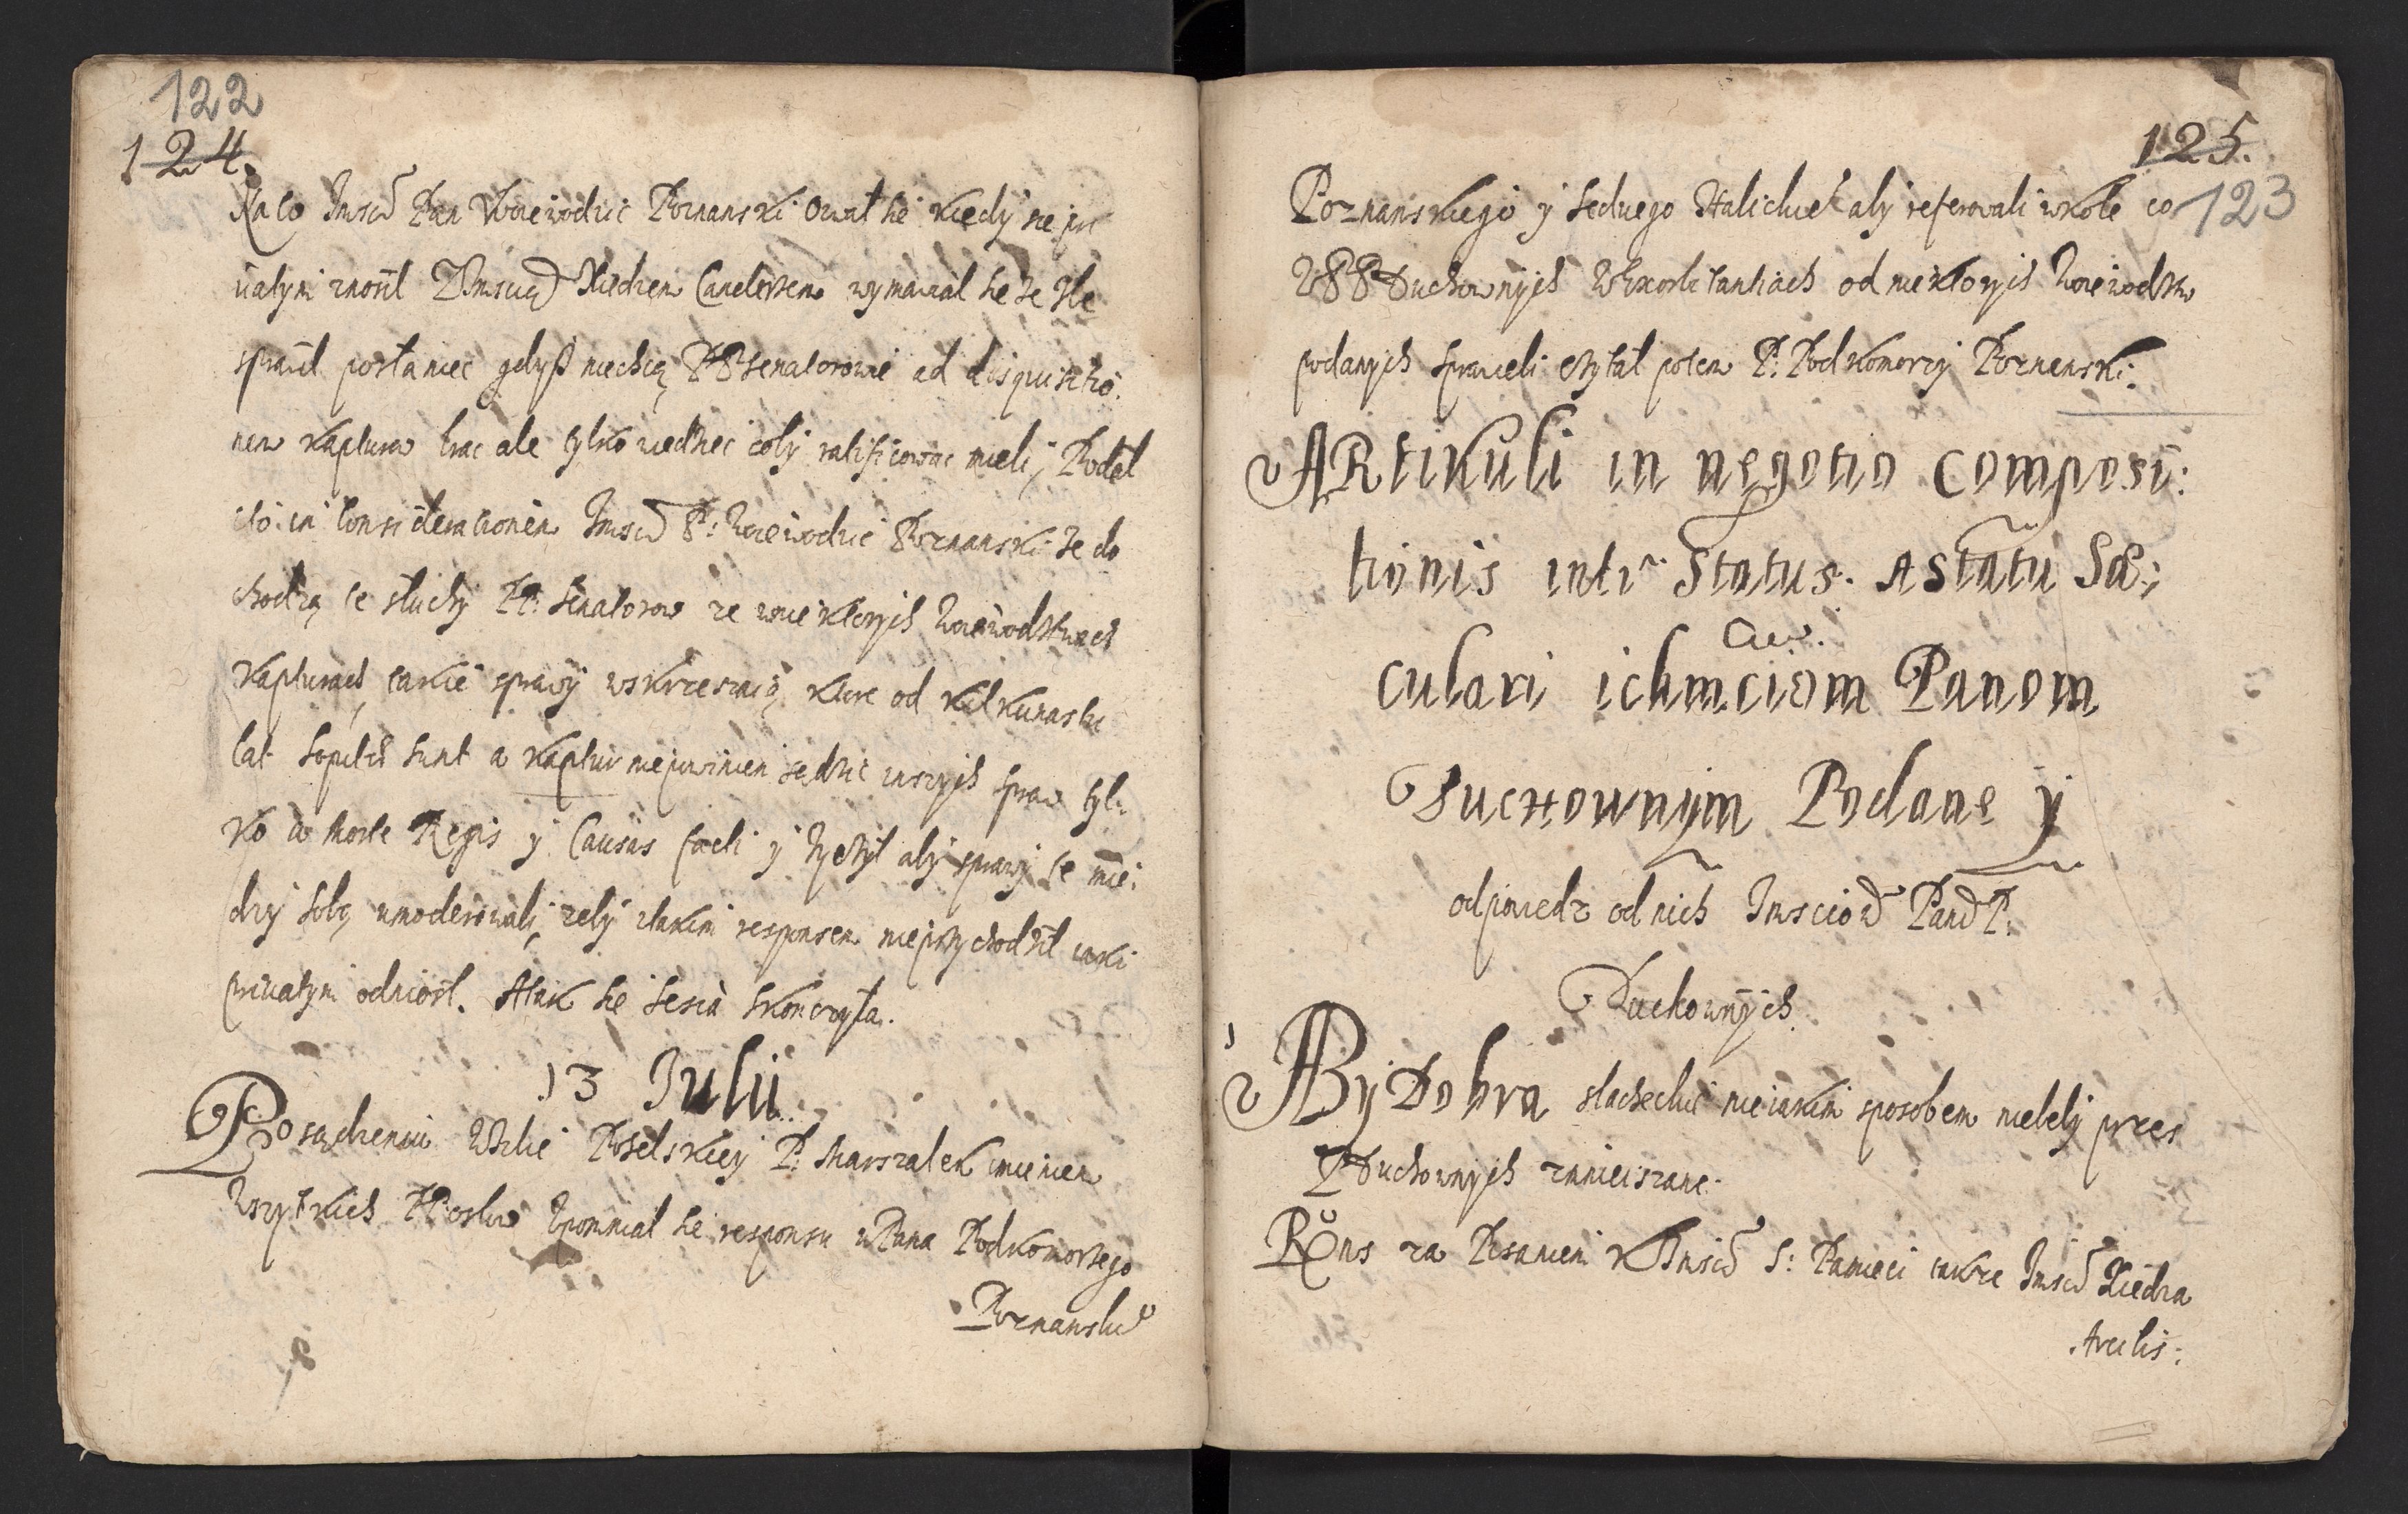 122
124.
Na co Jmscź Pan Woiewodzic Poznanski ozwał sie kiedy sie pri
uatym znosił Z Jmscią Xiedzem Canclerzem wymawiał sie że źle
sprawił posłaniec gdysz niechcą PP Senatorowie ad disquisitio:
nem Kapturow brac ale tylko wiedziec coby ratificowac mieli, Podał
to in Considerationem Jmsć P: Woiewodzic Poznanski że do
chodzą te słuchy PP: Senatorow ze w niektorych Woiewodztwach
Kapturach takie sprawy wskrzeszaią, ktore od kilkunastu
lat Sopitæ sunt a Kaptur niepowinien sądzic inszych spraw tyl:
ko a morte Regis y Causas facti y życzył aby sprawy te mie:
dzy sobą umoderowali, zeby z takim responsem nieprzychodził iaki
priuatym odniosł. A tak sie Sessia skonczyła.
13 Julii
Po sądzeniu W Izbie Poselskiey P: Marszałek imieniem
Wszytkich PP: osłow Vpomniał sie responsu u Pana Podkomorzego
Poznanskie
125.
123
Poznanskiego y Sedzego Halickie aby referowali w Kole co
Z PP Duchownych W Exorbitantiach od niektorych Woiewodztw
podanych sprawieli czytał potem P: Podkomorzy Poznanski.
ARtikuli in negotio Composi:
tionis inter Status. A Statu Sæ:
Cuv.
culari ichmciom Panom
Duchownym Podane y
odpowiedz od nich Jmsciow Panow P.
Duchownych
1
ABy Dobra slacheckie nieiakim sposobem niebeły przez
P Duchownych zmnieiszane.
Rñs za Pisaniem X Jmsci S: Pamieci takze Jmsci Xiedza
Arcibis: